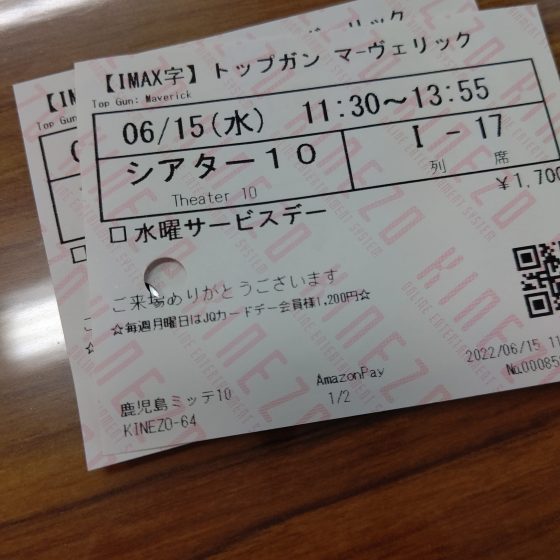 【IMAX字】トップガン マーヴェリック
Top Gun: Maverick
06/15(水) 11:30～13:55
シアター10
Theater 10
I - 17
列 席
¥1,700
□水曜サービスデー
ご来場ありがとうございます
☆毎週月曜日はJQカードデー会員様1,200円☆
2022/06/15 11
No.00085
AmazonPay
1/2
鹿児島ミッテ10
KINEZO-64
KINEZO
ONLINE ENTERTAINMENT SYSTEM
【IM
Top Gun
リック